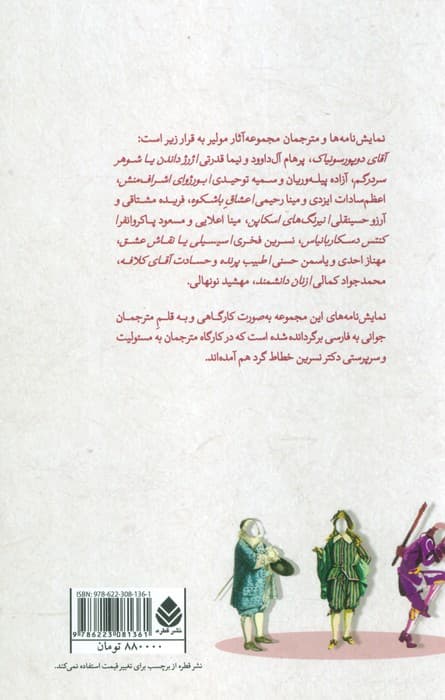 نمایش‌نامه‌ها و مترجمان مجموعه‌آثار مولیر به قرار زیر است:
آقای دوپورسونیاک، پرهام آل‌داوود و نیما قدرتی | ژرژ داندن یا شوهر
سردرگم، آزاده پیله‌وریان و سمیه توحیدی | بورژوای اشراف‌منش،
اعظم‌سادات ایزدی و مینا رحیمی | عشاق باشکوه، فریده مشتاقی و
آرزو حسینقلی | نیرنگ‌های اسکاپن، مینا اعلایی و مسعود پاکروانفر |
کنتس دسکاربانیاس، نسرین فخری | سیسیلی یا نقاش عشق،
مهناز احدی و یاسمن حسنی | طبیب پرنده و حسادت آقای کلافه،
محمدجواد کمالی | زنان دانشمند، مهشید نونهالی.
نمایش‌نامه‌های این مجموعه به‌صورت کارگاهی و به قلمِ مترجمان
جوانی به فارسی برگردانده شده است که در کارگاه مترجمان به مسئولیت
و سرپرستی دکتر نسرین خطاط گرد هم آمده‌اند.
ISBN: 978-622-308-136-1
9 786223 081361
نشر قطره
۸۸۰۰۰۰ تومان
نشر قطره از برچسب برای تغییر قیمت استفاده نمی‌کند.